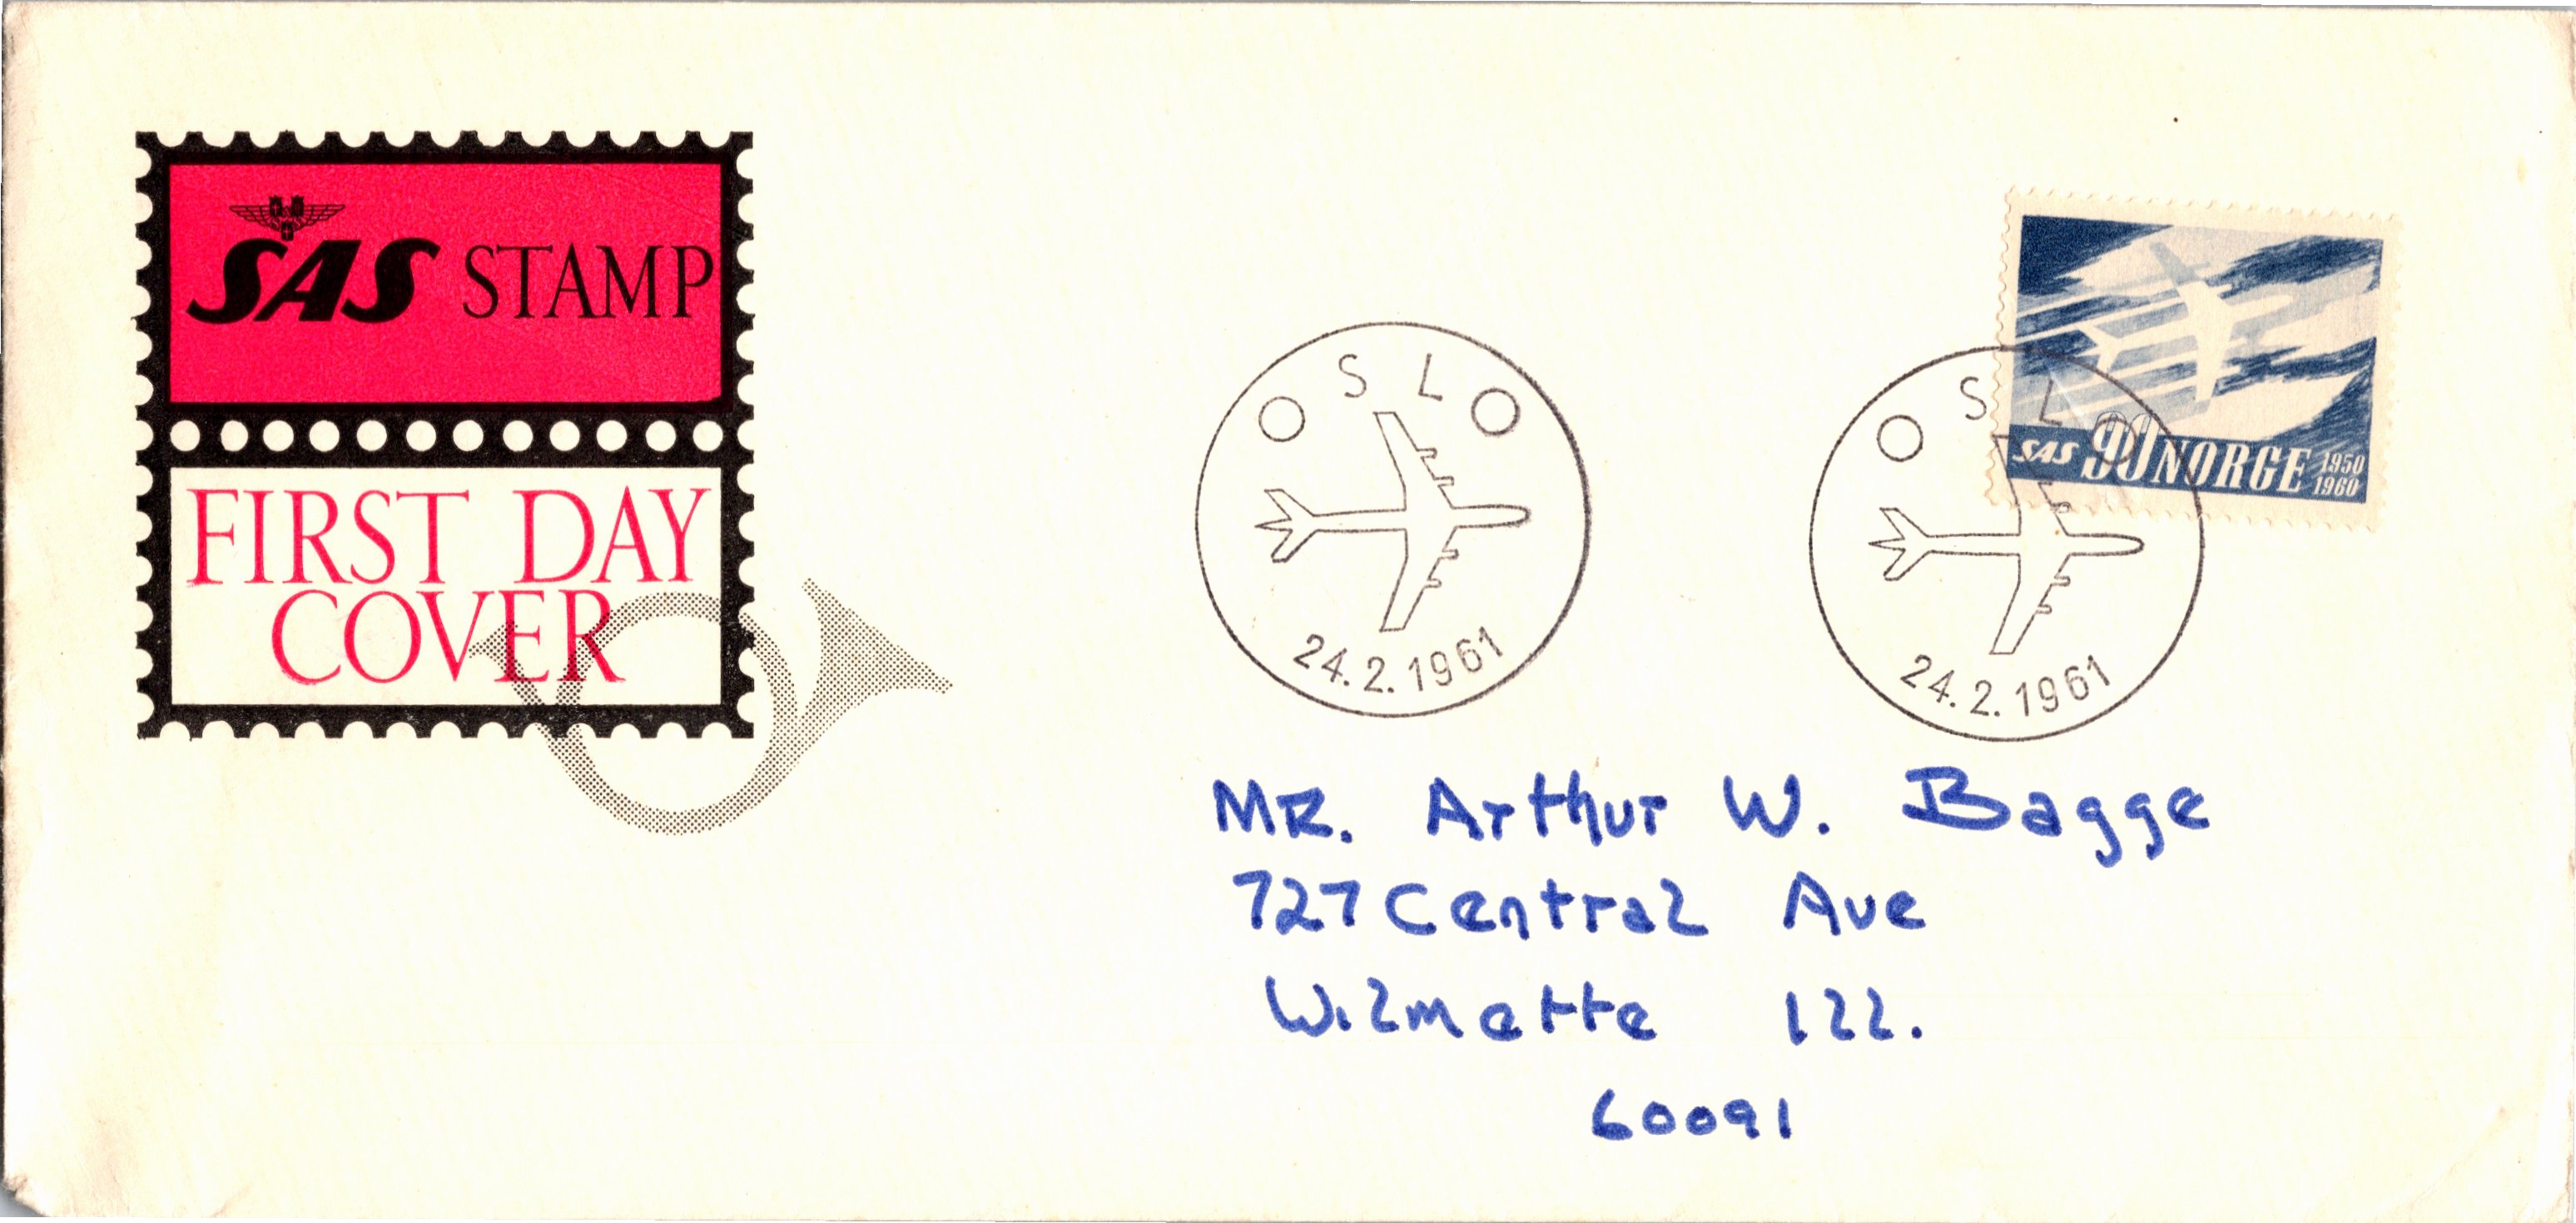 SAS STAMP
FIRST DAY
COVER
OSLO
24.2.1961
OSLO
24.2.1961
SAS 90 NORGE 1950
1960
MR. Arthur W. Bagge
727 Central Ave
Wilmette Ill.
60091